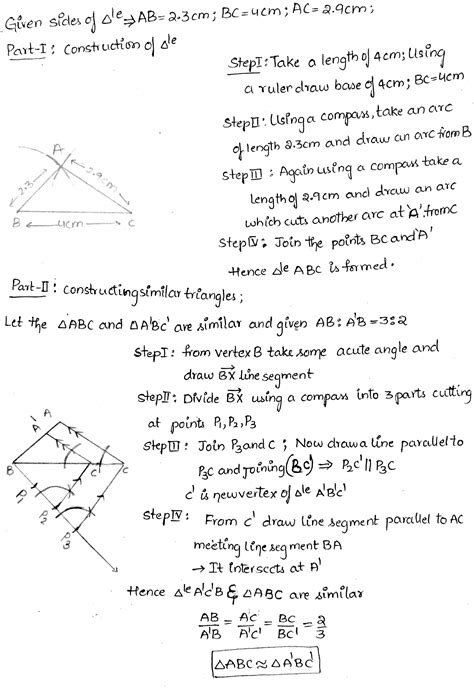 Given sides of Δle ⇒ AB = 2.3cm; BC = 4cm; AC = 2.9cm;
Part-I : construction of Δle
StepI: Take a length of 4cm; Using
a ruler draw base of 4cm; BC=4cm
StepII: Using a compass, take an arc
of length 2.3cm and draw an arc from B
StepIII: Again using a compass take a
length of 2.9cm and draw an arc
which cuts another arc at 'A' from C
StepIV: Join the points BC and 'A'
Hence Δle ABC is formed.
A
2.3
2.9cm
B
4cm
C
Part-II : constructing similar triangles;
Let the ΔABC and ΔA'BC' are similar and given AB : A'B = 3:2
StepI: from vertex B take some acute angle and
draw BX line segment
StepII: Divide BX using a compass into 3 parts cutting
at points P1, P2, P3
StepIII: Join P3 and C ; Now draw a line parallel to
P3C and joining (BC) ⇒ P2C' || P3C
C' is new vertex of Δle A'B'C'
StepIV: From C' draw line segment parallel to AC
meeting line segment BA
→ It intersects at A'
A
A'
B
C'
C
P1
P2
P3
Hence Δle A'C'B & ΔABC are similar
AB/A'B = AC/A'C' = BC/BC' = 2/3
ΔABC ≈ ΔA'BC'